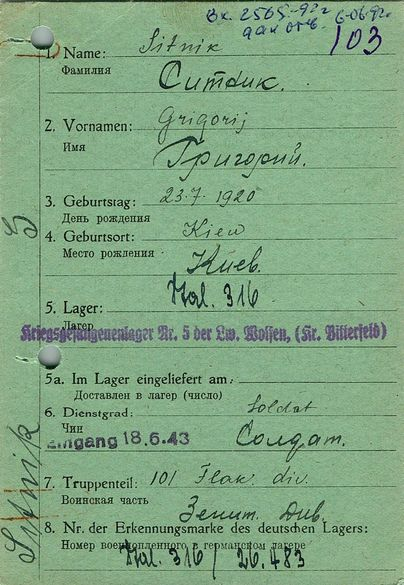 Вх. 2565-92г 6-06-92г.
дан отв.
103
1. Name: Sitnik
Фамилия
Ситник.
2. Vornamen: Grigorij
Имя
Григорий.
3. Geburtstag: 23.7.1920
День рождения
4. Geburtsort: Kiew
Место рождения
Киев.
5. Lager: Stal. 316
Лагерь
Kriegsgefangenenlager Nr. 5 der Lw. Wolfen, (Kr. Bitterfeld)
5a. Im Lager eingeliefert am:
Доставлен в лагерь (число)
6. Dienstgrad: Soldat
Чин
Eingang 18.6.43 Солдат.
7. Truppenteil: 101 Flak. div.
Воинская часть
Зенит. Див.
8. Nr. der Erkennungsmarke des deutschen Lagers:
Номер военнопленного в германском лагере
Stal. 316 / 26.483
Sitnik